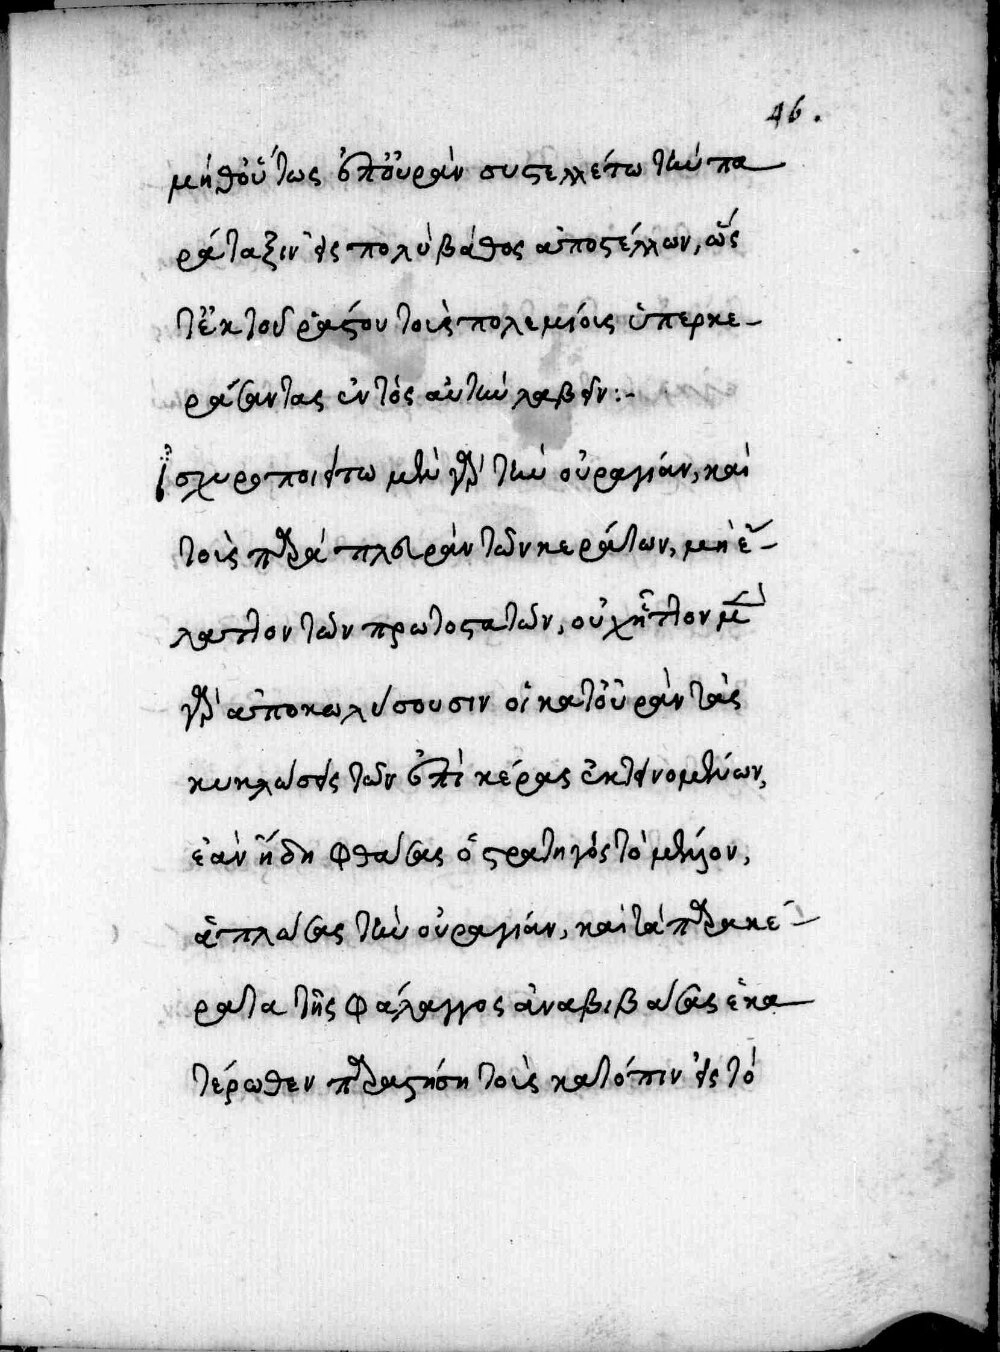 46.
μήθ' οὕτως ἐπ' οὐρὰν συστελλέτω τὴν πα
ράταξιν εἰς πολὺ βάθος ἀποστέλλων, ὥς
τ' ἐκ τοῦ ῥάστου τοὺς πολεμίους ὑπερκε-
ράσαντας ἐντὸς αὐτὴν λαβεῖν:-
ἰσχυροποιείτω μὲν γὰρ τὴν οὐραγίαν, καὶ
τοὺς παρὰ πλευρὰν τῶν κεράτων, μὴ ἔ-
λαττον τῶν πρωτοστατῶν, οὐχ ἧττον
γὰρ ἀποκωλύσουσιν οἱ κατ' οὐρὰν τὰς
κυκλώσεις τῶν ἐπὶ κέρας ἐκτεινομένων,
ἐὰν ἤδη φθάσας ὁ στρατηγὸς τὸ μέλλον,
ἁπλώσας τὴν οὐραγίαν, καὶ τὰ παρὰ κέ-
ρατα τῆς φάλαγγος ἀναβιβάσας ἑκα
τέρωθεν παραστήσῃ τοὺς κατόπιν εἰς τὸ